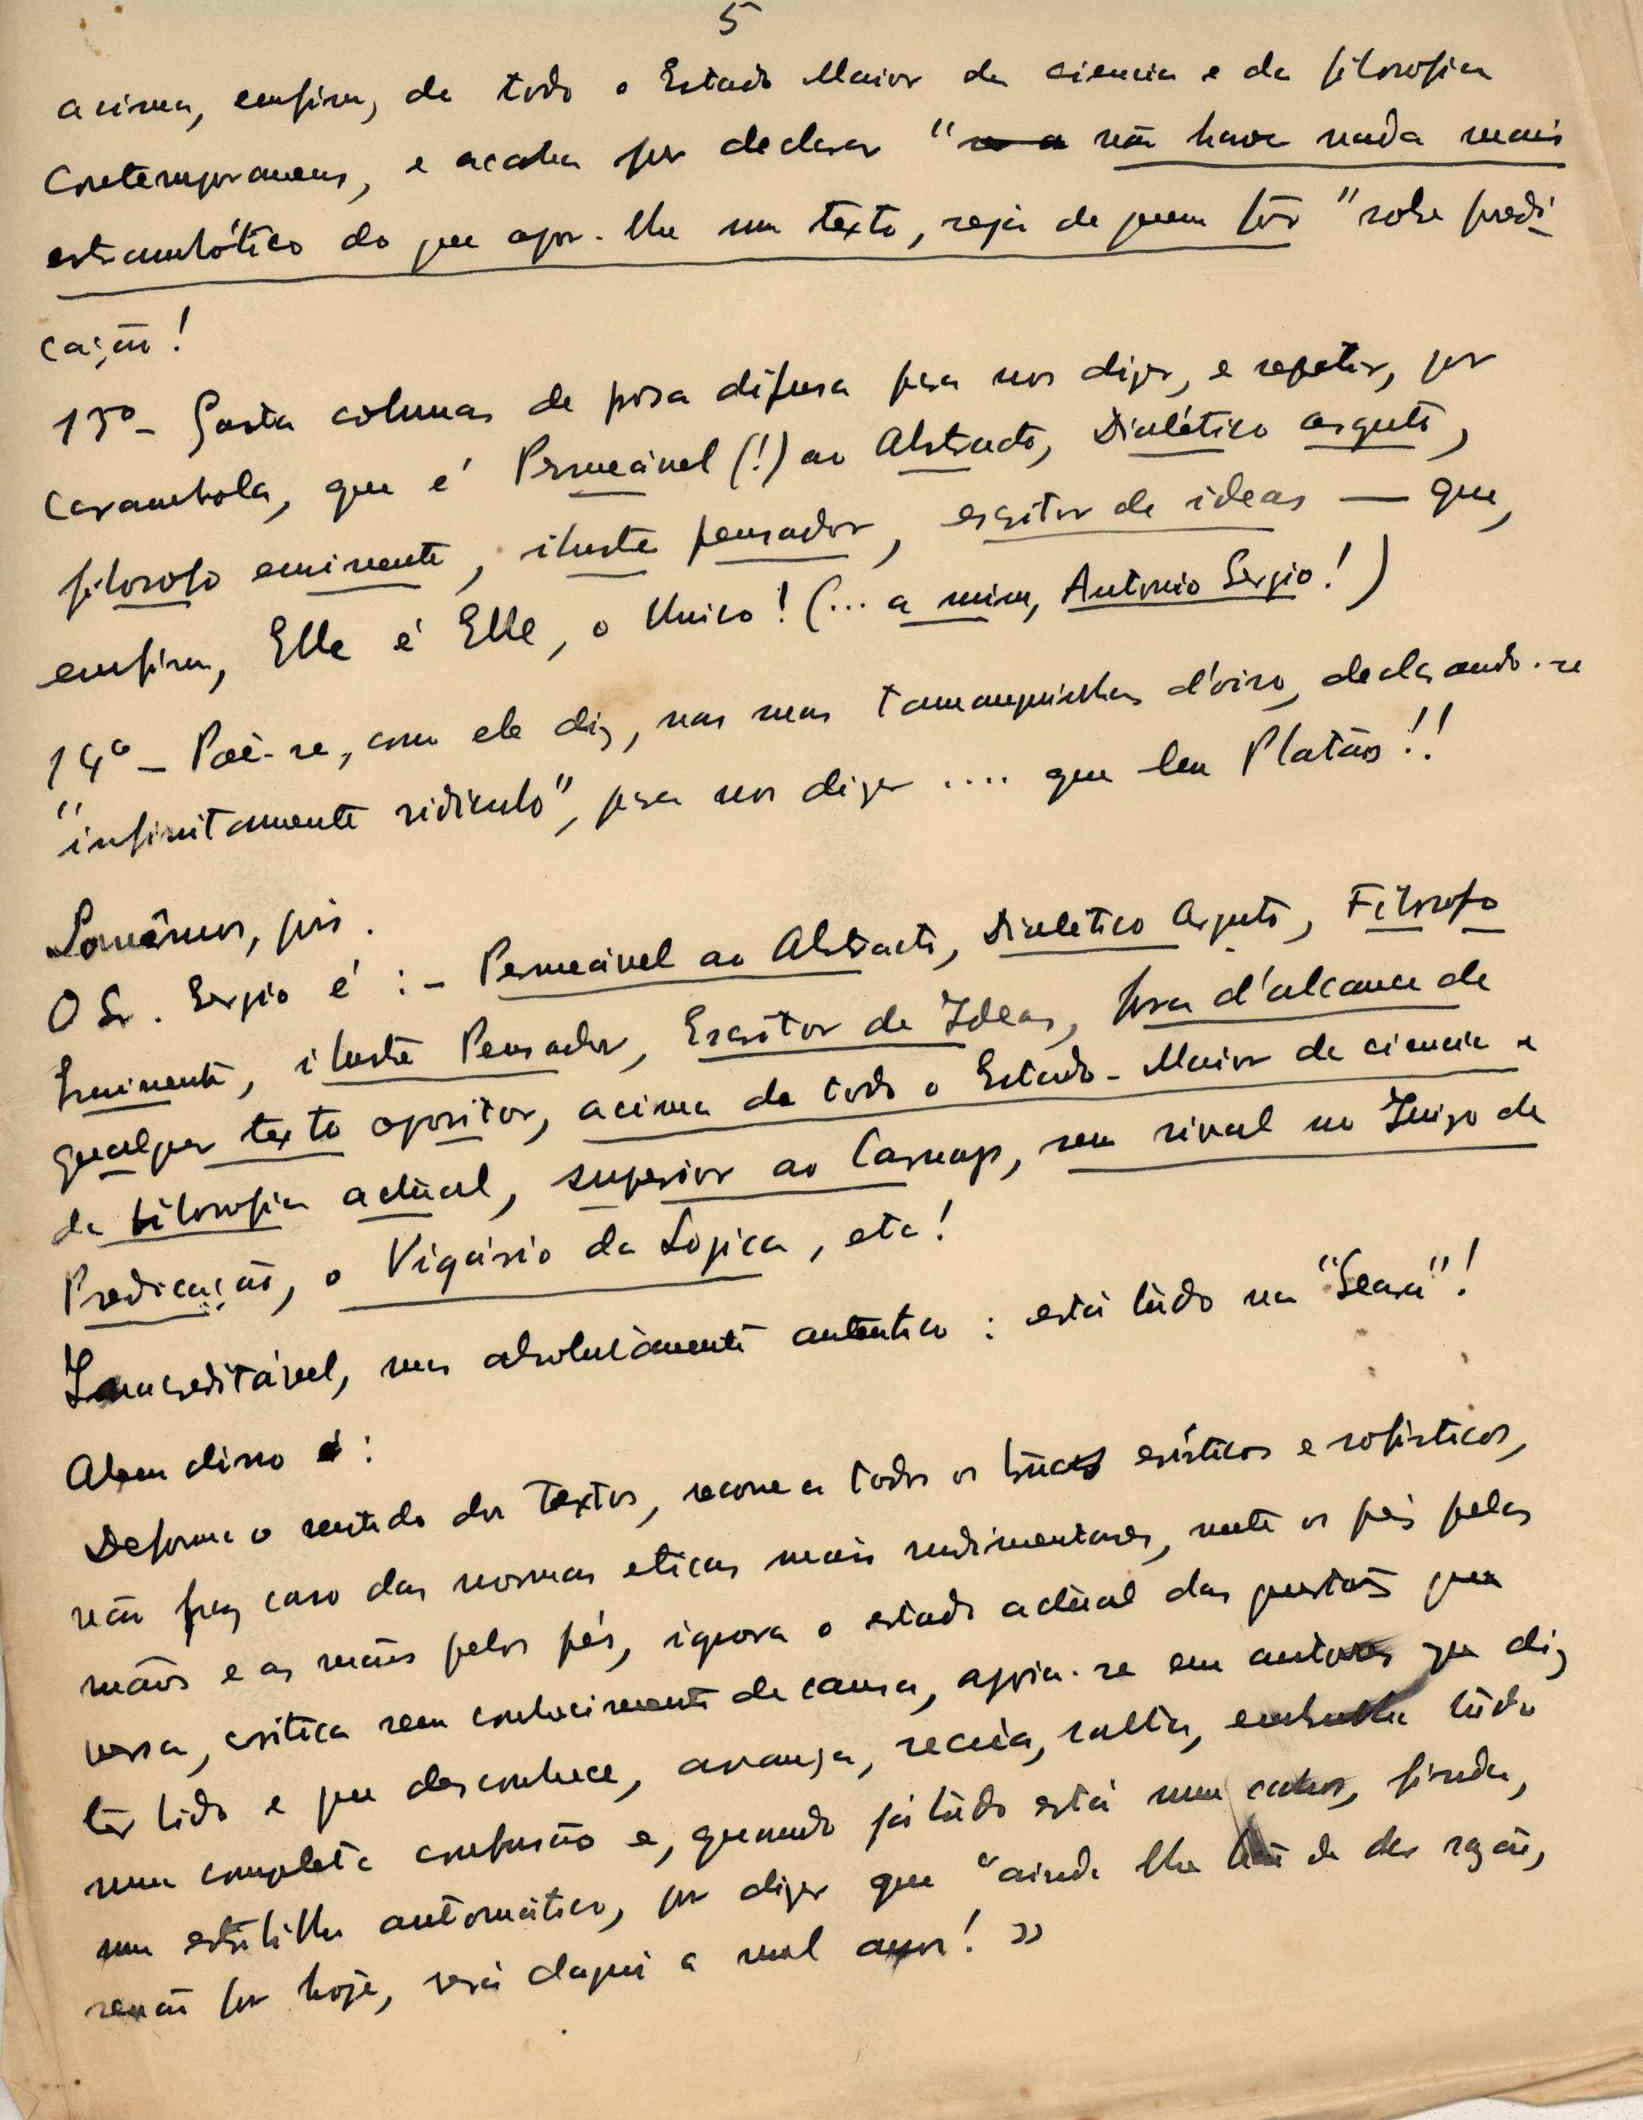 5
acima, emfim, de todo o Estado Maior da ciencia e da filosofia
contemporaneas, e acaba por declarar "não haver nada mais
estrambótico do que opor-lhe um texto, seja de quem fôr" sobre predi-
cação!
13º - Gasta colunas de prosa difusa para nos dizer, e repetir, por
carambola, que é Permeável (!) ao Abstracto, Dialético arguto,
filosofo eminente, ilustre pensador, escritor de ideas — que,
emfim, Elle é Elle, o Unico! (... a mim, Antonio Sergio!)
14º - Poê-se, com ele diz, nas suas tamanquinhas d'oiro, declarando-se
"infinitamente ridiculo", para nos dizer .... que leu Platão!!
Somêmos, pois.
O Sr. Sergio é : - Permeável ao Abstracto, Dialético Arguto, Filosofo
Eminente, ilustre Pensador, Escritor de Ideas, fora d'alcance de
qualquer texto opositor, acima de todo o Estado-Maior da ciencia e
da Filosofia actual, superior ao Carnap, sem rival no Juizo de
Predicação, o Vigário da Logica, etc!
Inacreditável, mas absolutamente autentico : está tudo na "Seara"!
Alem disso :
Deforma o sentido dos textos, recorre a todos os trucs erísticos e sofisticos,
não faz caso das normas eticas mais rudimentares, mete os pés pelas
mãos e as mãos pelos pés, ignora o estado actual das questões que
versa, critica sem conhecimento de causa, appoia-se em autores que diz
ter lido e que desconhece, avança, recúa, salta, embrulha tudo
numa completa confusão e, quando já tudo está num cahos, finda,
num estribilho automático, por dizer que "ainda lhe hão de dar razão,
senão for hoje, será daqui a mil anos! »